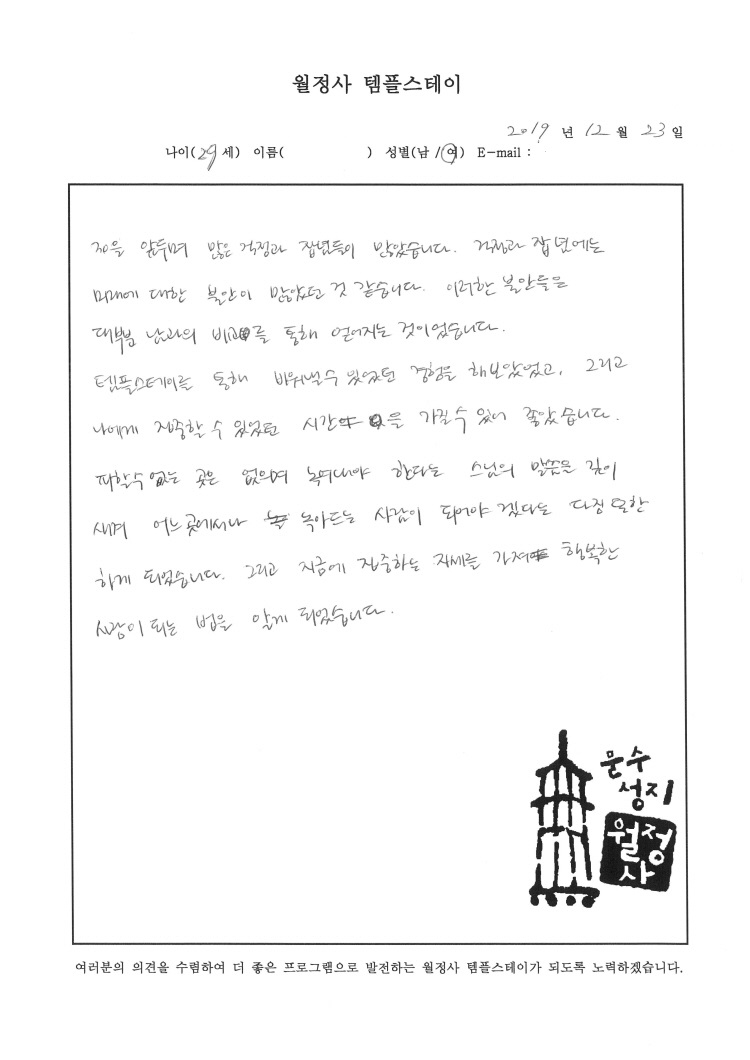 월정사 템플스테이
2019 년 12 월 23 일
나이(29 세) 이름( ) 성별(남 / 여) E-mail :
30을 앞두며 많은 걱정과 잡념들이 많았습니다. 걱정과 잡념에는
미래에 대한 불안이 많았던 것 같습니다. 이러한 불안들은
대부분 남과의 비교를 통해 얻어지는 것이었습니다.
템플스테이를 통해 비워낼 수 있었던 경험을 해보았었고, 그리고
나에게 집중할 수 있었던 시간을 가질 수 있어 좋았습니다.
피할 수 없는 곳은 없으며 녹여내야 한다는 스님의 말씀을 깊이
새겨 어느 곳에서나 녹아드는 사람이 되어야 겠다는 다짐 또한
하게 되었습니다. 그리고 지금에 집중하는 자세를 가져 행복한
사람이 되는 법을 알게 되었습니다.
문수
성지
월정
사
여러분의 의견을 수렴하여 더 좋은 프로그램으로 발전하는 월정사 템플스테이가 되도록 노력하겠습니다.